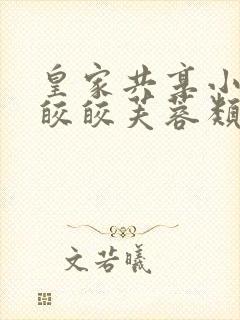 皇家共享小
皎皎芙蓉颓
文若曦